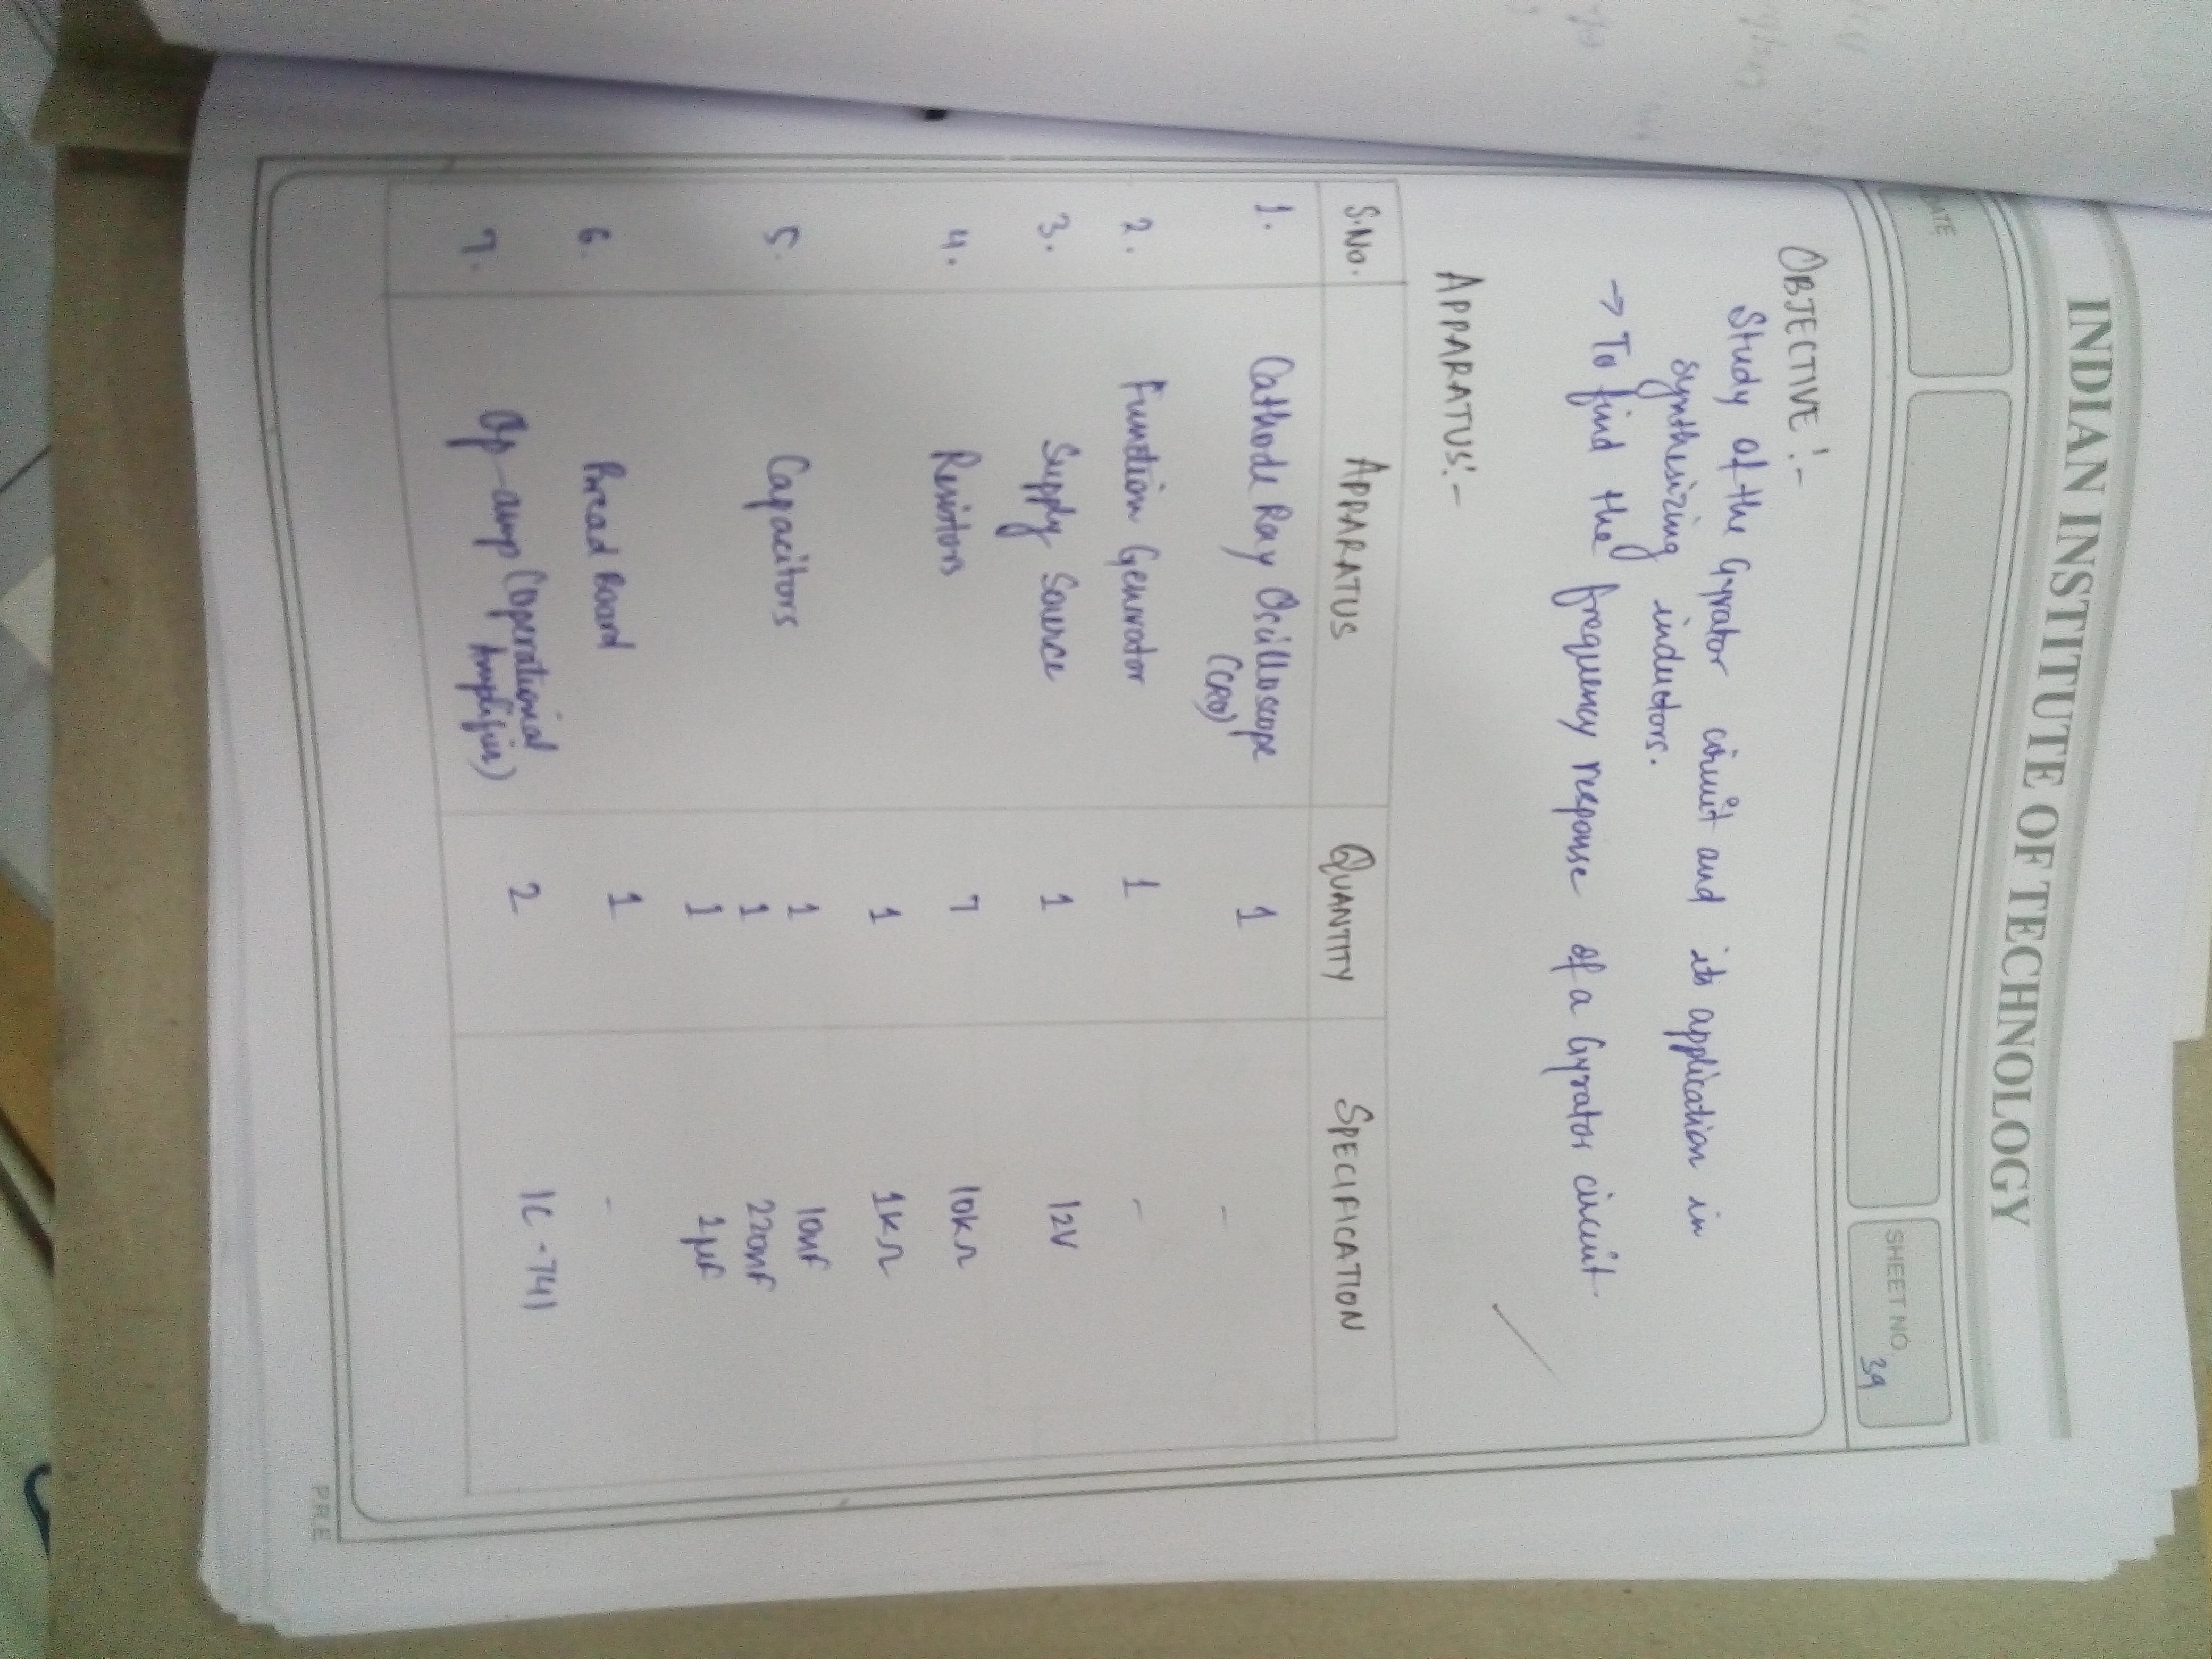 INDIAN INSTITUTE OF TECHNOLOGY
DATE
SHEET NO.
39
OBJECTIVE :-
Study of the Gyrator circuit and its application in
synthesizing inductors.
→ To find the frequency response of a Gyrator circuit
APPARATUS:-
S.No. APPARATUS QUANTITY SPECIFICATION
1. Cathode Ray Oscilloscope 1 -
(CRO)
2. Function Generator 1 -
3. Supply Source 1 12V
4. Resistors 7 10kΩ
1 1kΩ
5. Capacitors 1 10nF
1 220nF
1 1μF
6. Bread Board 1 -
7. Op-amp (Operational 2 IC-741
Amplifier)
P.R.E